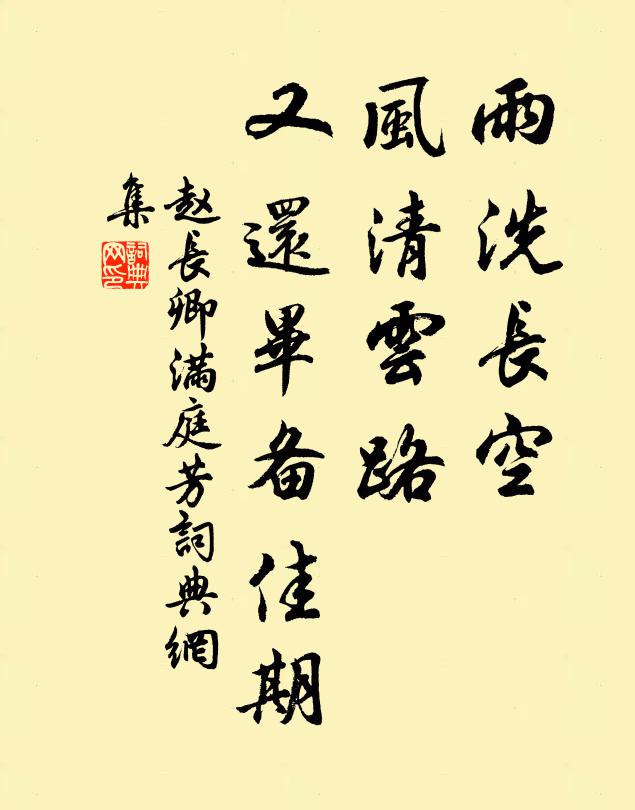 雨洗長空
風清雲路
又還畢备佳期
赵長卿满庭芳詞典網
集
詞典網印